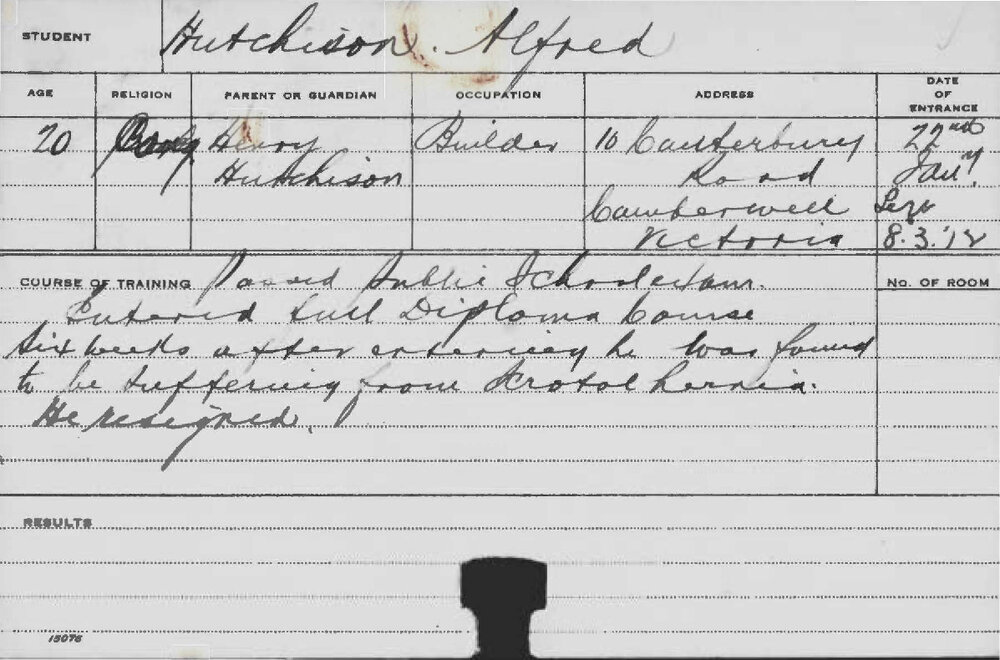 STUDENT Hutchison. Alfred
AGE RELIGION PARENT OR GUARDIAN OCCUPATION ADDRESS DATE OF ENTRANCE
20 Henry Builder 10 Canterbury 22nd
Hutchison Road Jany.
Camberwell
Victoria 8.3.'12
COURSE OF TRAINING Passed Public School Exam. No. OF ROOM
Entered full Diploma Course
Six weeks after entering he was found
to be suffering from Scrotol hernia.
He resigned.
RESULTS
15076